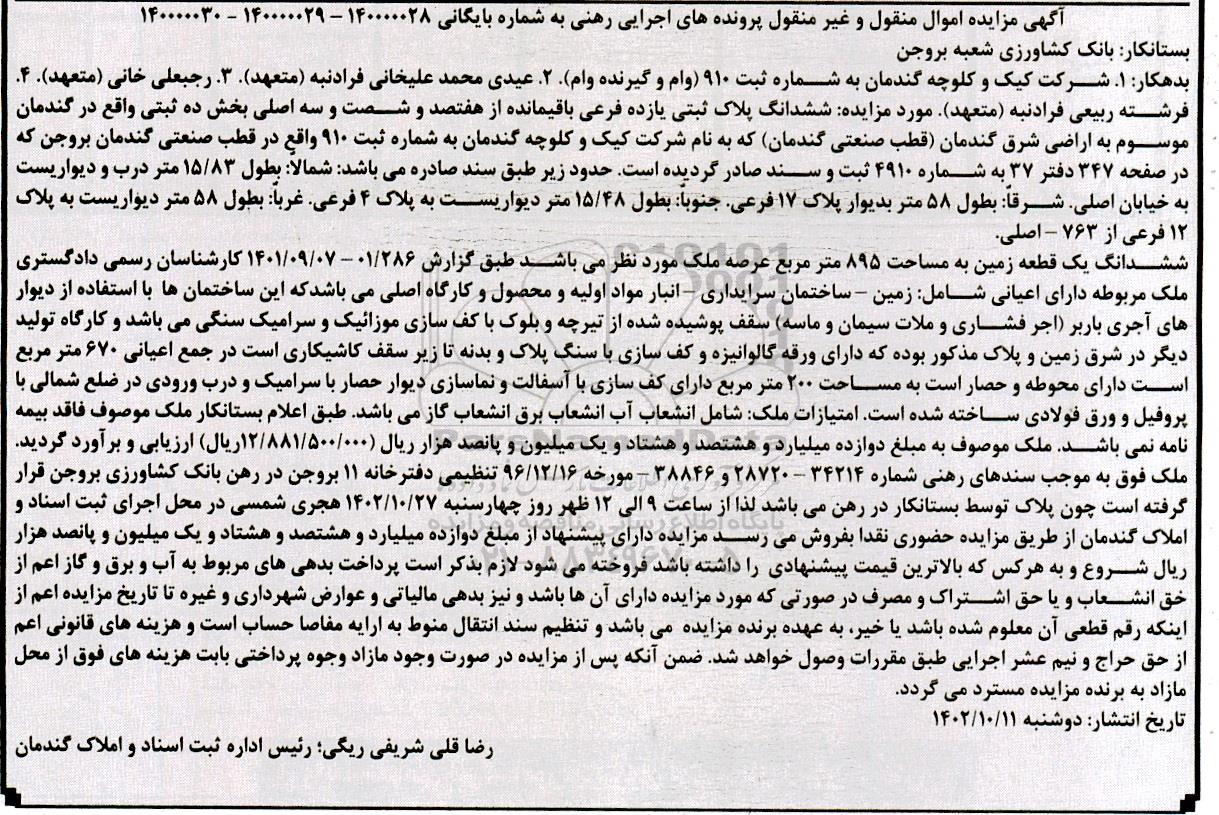 آگهی مزایده اموال منقول و غیر منقول پرونده های اجرایی رهنی به شماره بایگانی ۱۴۰۰۰۰۰۲۸ – ۱۴۰۰۰۰۰۲۹ – ۱۴۰۰۰۰۰۳۰
بستانکار: بانک کشاورزی شعبه بروجن
بدهکار: ۱. شرکت کیک و کلوچه گندمان به شماره ثبت ۹۱۰ (وام و گیرنده وام). ۲. عیدی محمد علیخانی فرادنبه (متعهد). ۳. رجبعلی خانی (متعهد). ۴.
فرشته ربیعی فرادنبه (متعهد). مورد مزایده: ششدانگ پلاک ثبتی یازده فرعی باقیمانده از هفتصد و شصت و سه اصلی بخش ده ثبتی واقع در گندمان
موسوم به اراضی شرق گندمان (قطب صنعتی گندمان) که به نام شرکت کیک و کلوچه گندمان به شماره ثبت ۹۱۰ واقع در قطب صنعتی گندمان بروجن که
در صفحه ۳۴۷ دفتر ۳۷ به شماره ۴۹۱۰ ثبت و سند صادر گردیده است. حدود زیر طبق سند صادره می باشد: شمالاً: بطول ۱۵/۸۳ متر درب و دیواریست
به خیابان اصلی. شرقاً: بطول ۵۸ متر بدیوار پلاک ۱۷ فرعی. جنوباً: بطول ۱۵/۴۸ متر دیواریست به پلاک ۴ فرعی. غرباً: بطول ۵۸ متر دیواریست به پلاک
۱۲ فرعی از ۷۶۳ – اصلی.
ششدانگ یک قطعه زمین به مساحت ۸۹۵ متر مربع عرصه ملک مورد نظر می باشد طبق گزارش ۰۱/۲۸۶ – ۱۴۰۱/۰۹/۰۷ کارشناسان رسمی دادگستری
ملک مربوطه دارای اعیانی شامل: زمین – ساختمان سرایداری – انبار مواد اولیه و محصول و کارگاه اصلی می باشدکه این ساختمان ها با استفاده از دیوار
های آجری باربر (اجر فشاری و ملات سیمان و ماسه) سقف پوشیده شده از تیرچه و بلوک با کف سازی موزائیک و سرامیک سنگی می باشد و کارگاه تولید
دیگر در شرق زمین و پلاک مذکور بوده که دارای ورقه گالوانیزه و کف سازی با سنگ پلاک و بدنه تا زیر سقف کاشیکاری است در جمع اعیانی ۶۷۰ متر مربع
است دارای محوطه و حصار است به مساحت ۲۰۰ متر مربع دارای کف سازی با آسفالت و نماسازی دیوار حصار با سرامیک و درب ورودی در ضلع شمالی با
پروفیل و ورق فولادی ساخته شده است. امتیازات ملک: شامل انشعاب آب انشعاب برق انشعاب گاز می باشد. طبق اعلام بستانکار ملک موصوف فاقد بیمه
نامه نمی باشد. ملک موصوف به مبلغ دوازده میلیارد و هشتصد و هشتاد و یک میلیون و پانصد هزار ریال (۱۲/۸۸۱/۵۰۰/۰۰۰ریال) ارزیابی و برآورد گردید.
ملک فوق به موجب سندهای رهنی شماره ۳۴۲۱۴ – ۲۸۷۲۰ و ۳۸۸۴۶ – مورخه ۹۶/۱۲/۱۶ تنظیمی دفترخانه ۱۱ بروجن در رهن بانک کشاورزی بروجن قرار
گرفته است چون پلاک توسط بستانکار در رهن می باشد لذا از ساعت ۹ الی ۱۲ ظهر روز چهارسنبه ۱۴۰۲/۱۰/۲۷ هجری شمسی در محل اجرای ثبت اسناد و
املاک گندمان از طریق مزایده حضوری نقدا بفروش می رسد مزایده دارای پیشنهاد از مبلغ دوازده میلیارد و هشتصد و هشتاد و یک میلیون و پانصد هزار
ریال شروع و به هرکس که بالاترین قیمت پیشنهادی را داشته باشد فروخته می شود لازم بذکر است پرداخت بدهی های مربوط به آب و برق و گاز اعم از
خق انشعاب و یا حق اشتراک و مصرف در صورتی که مورد مزایده دارای آن ها باشد و نیز بدهی مالیاتی و عوارض شهرداری و غیره تا تاریخ مزایده اعم از
اینکه رقم قطعی آن معلوم شده باشد یا خیر، به عهده برنده مزایده می باشد و تنظیم سند انتقال منوط به ارایه مفاصا حساب است و هزینه های قانونی اعم
از حق حراج و نیم عشر اجرایی طبق مقررات وصول خواهد شد. ضمن آنکه پس از مزایده در صورت وجود مازاد وجوه پرداختی بابت هزینه های فوق از محل
مازاد به برنده مزایده مسترد می گردد.
تاریخ انتشار: دوشنبه ۱۴۰۲/۱۰/۱۱
رضا قلی شریفی ریگی؛ رئیس اداره ثبت اسناد و املاک گندمان